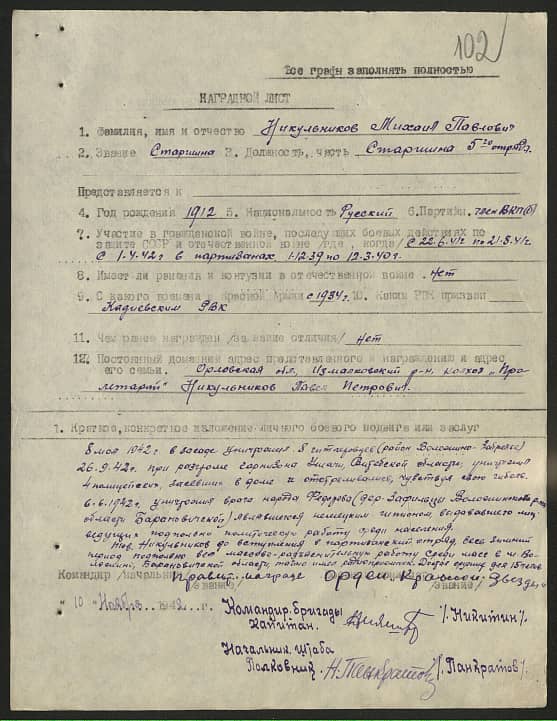 102
Все графы заполнять полностью
НАГРАДНОЙ ЛИСТ
1. Фамилия, имя и отчество Никульников Михаил Павлович
2. Звание Старшина 3. Должность, часть Старшина 5го отряда
Представляется к
4. Год рождения 1912 5. Национальность Русский 6. Партийн. член ВКП(б)
7. Участие в гражданской войне, последующих боевых действиях по
защите СССР и отечественной войне /где, когда/ с 22.6.41г. по 21.8.41г.
С 1.4.42г в партизанах, 1.12.39 по 12.3.40г.
8. Имеет-ли ранения и контузии в отечественной войне. Нет
9. С какого времени в Красной Армии с 1934г. 10. Каким РВК призван
Кадиевским РВК
11. Чем ранее награжден /за какие отличия/ Нет
12. Постоянный домашний адрес представленного к награждению и адрес
его семьи. Орловская обл, Измалковский р-н. колхоз "Про
летарий" Никульников Павел Петрович.
1. Краткое, конкретное изложение личного боевого подвига или заслуг
8 мая 1942г в засаде уничтожил 8 гитлеровцев (район Воложино-
26.9.42г. при разгроме гарнизона Ушачи, Витебской области, уничтожил
4 полицейских, засевших в доме и отстреливался, чувствуя свою гибель.
6.6.1942г. уничтожил врага народа Федорова (дер.
области Барановичской) являвшегося немецким шпионом выдававшего лиц
ведущих подпольно политическую работу среди населения.
Тов. Никульников до вступления в партизанский отряд, весь зимний
период подпольно вел массово-разъяснительную работу среди масс в
Барановичской области,
Командир /начальник Правит. награде Орден Красной Звезды
/звание/ /звание/
"10" Ноября 1942г.
Командир бригады
капитан. /Никитин/.
Начальник Штаба
Полковник Н. Панкратов /Панкратов/